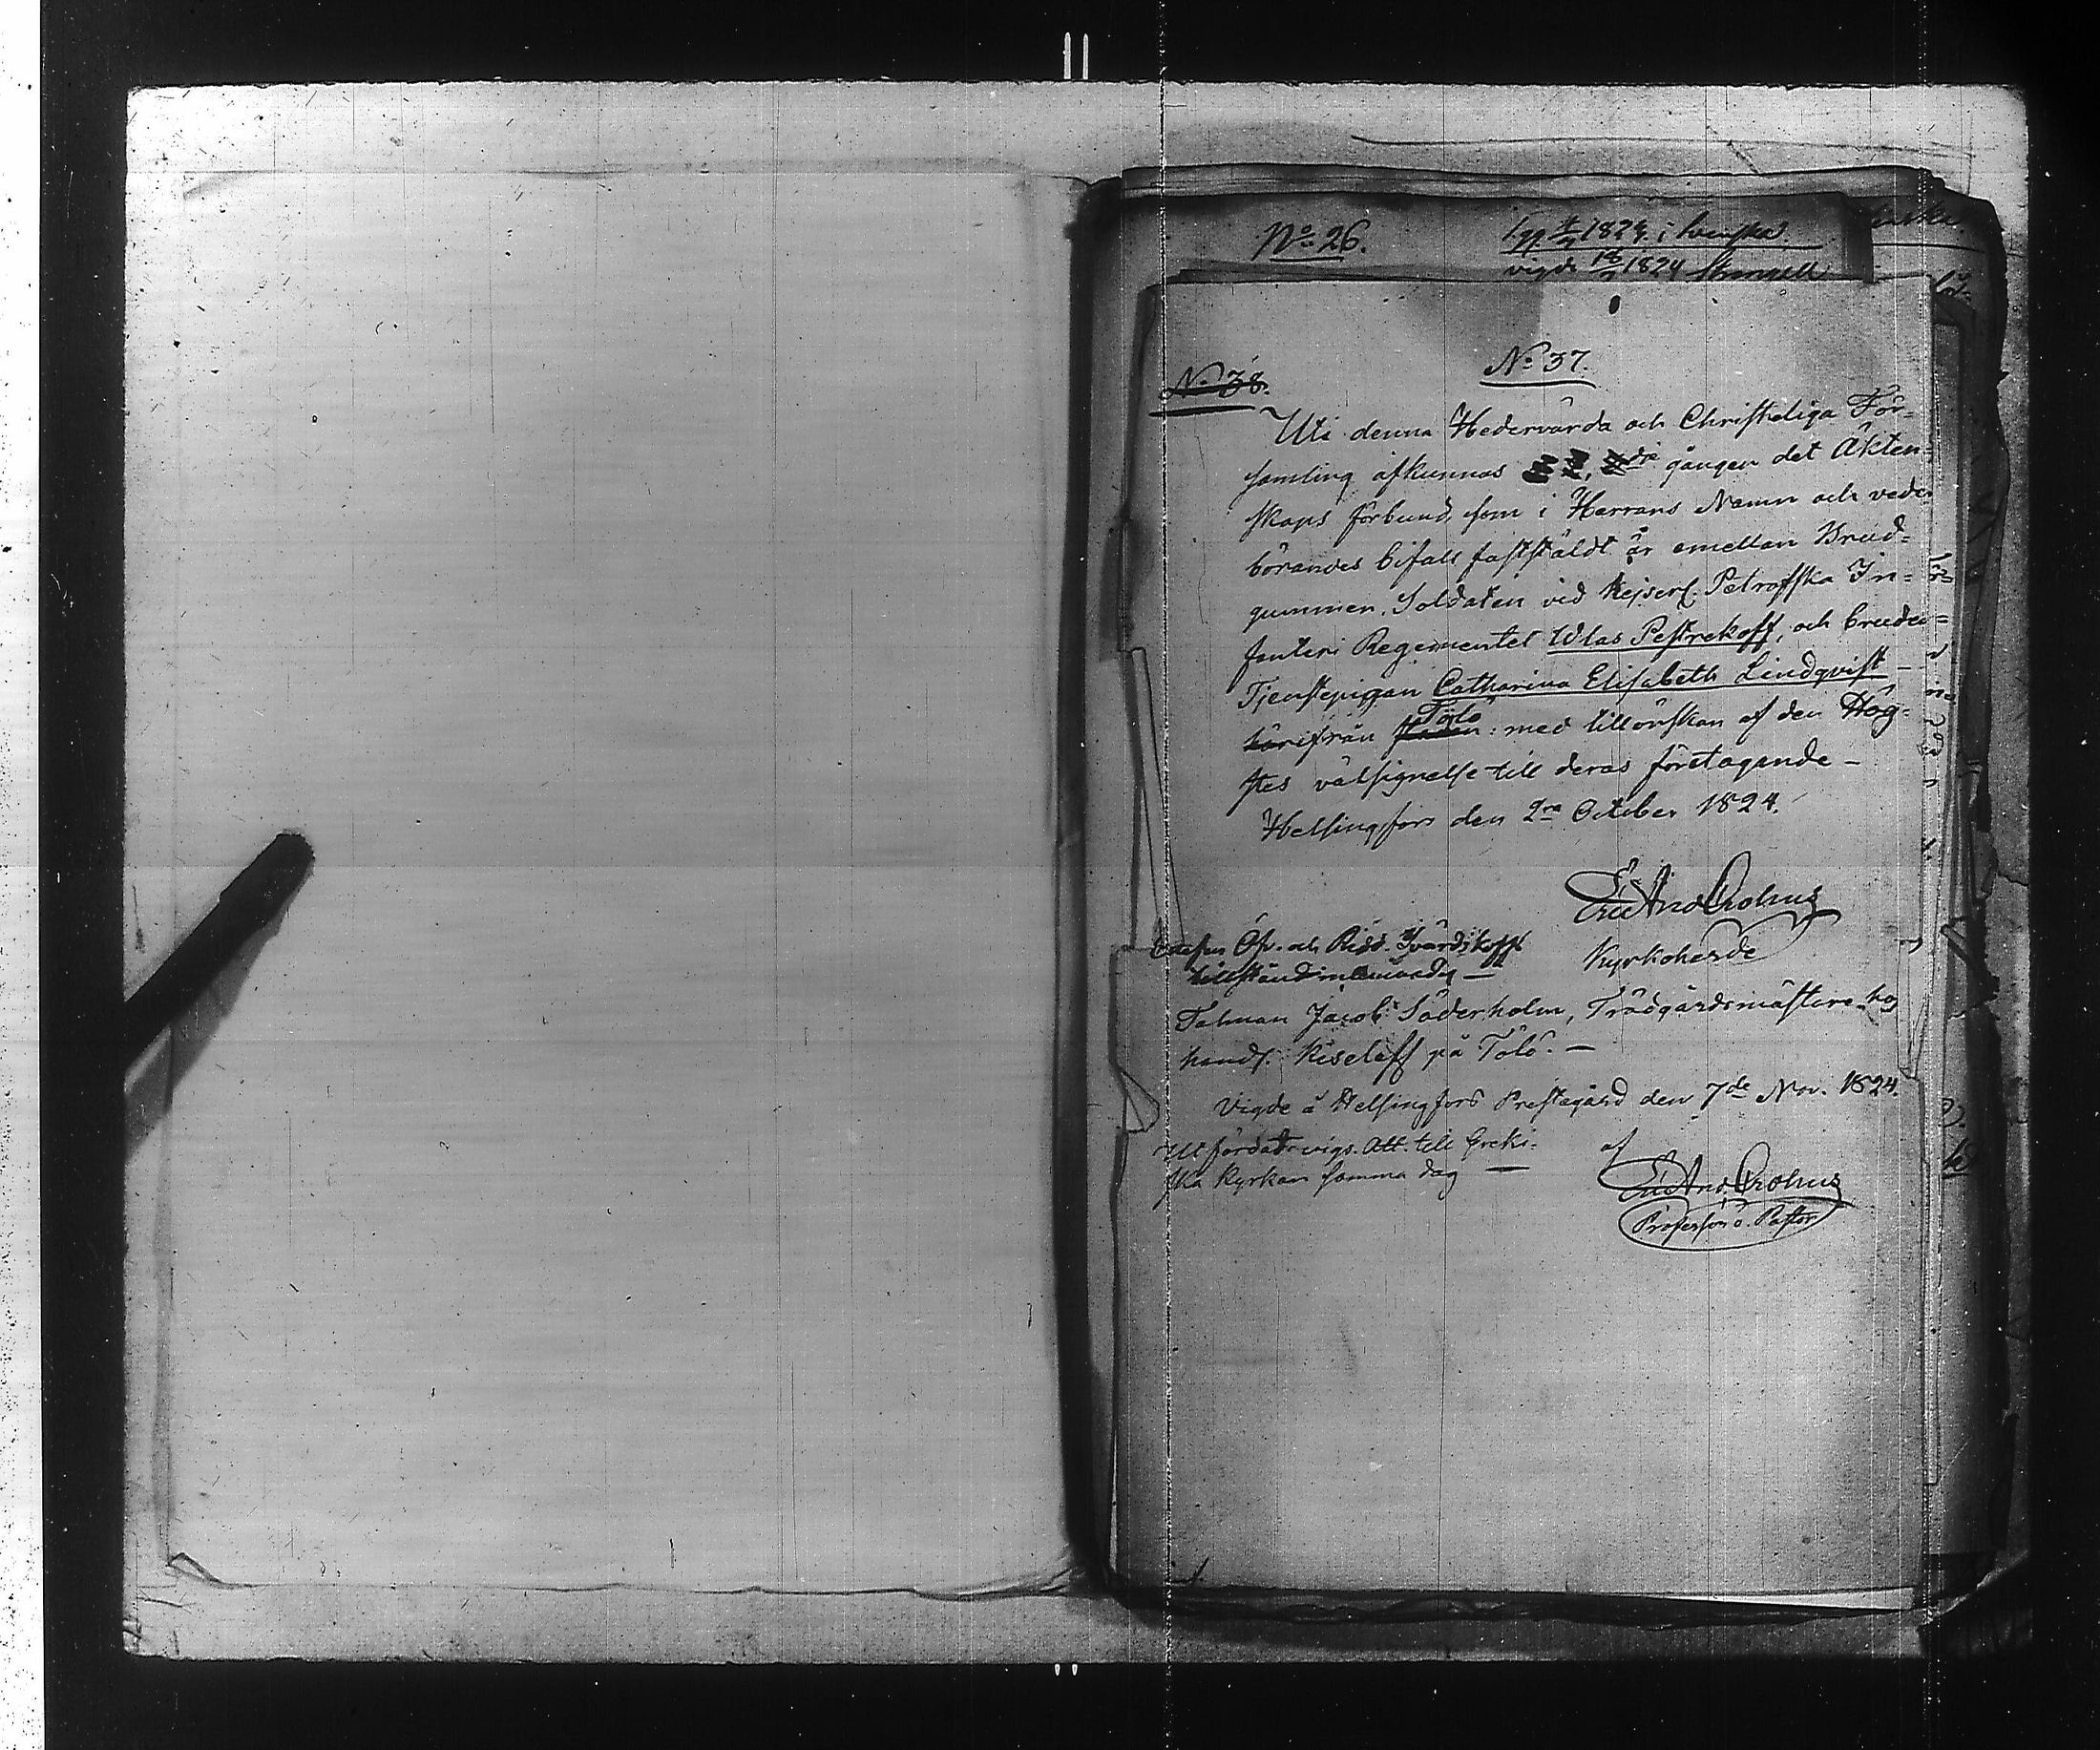 No 26.
1824 i Svenska
vigde 18/7 1824
No 37.
No 38.
Uti denna Hedervärda och Christeliga För-
samling afkunnas gången det Äkten-
skaps förbund, som i Herrans Namn och veder-
börandes bifall fastställdt är emellan Brud-
gummen, Soldaten vid Kejserl. Petroffska In-
fanteri Regementet Wlas Pestrekoff, och bruden-
Tjenstepigan Catharina Elisabeth Lindqvist -
härifrån staden Tölö: med tillönskan af den Hög-
stes välsignelse till deras företagande -
Helsingfors den 2ra October 1824.
Eric And. Crohns
Kyrkoherde
Öfv. och Ridd.
Talman Jacob Söderholm, Trädgårdsmästare hos
handl. Kiseleff på Tölö. -
Vigde å Helsingfors Prestegård den 7de Nov. 1824.
af
Utfärdadt vigs. Att. till Greki-
ska Kyrkan samma dag -
Eric And. Crohns
Professor o. Pastor